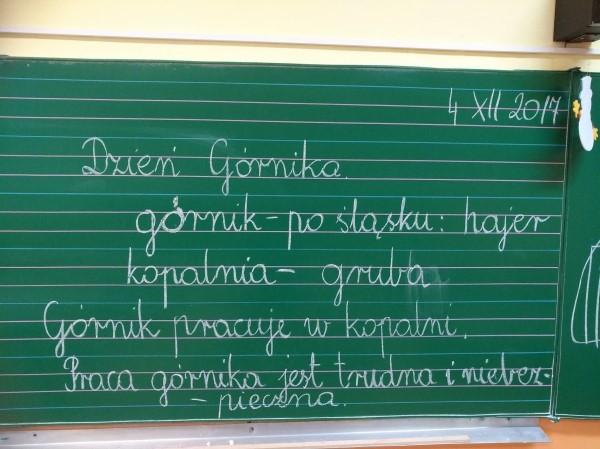 4 XII 2017
Dzień Górnika.
górnik - po śląsku: hajer
kopalnia - gruba
Górnik pracuje w kopalni.
Praca górnika jest trudna i niebez-
- pieczna.